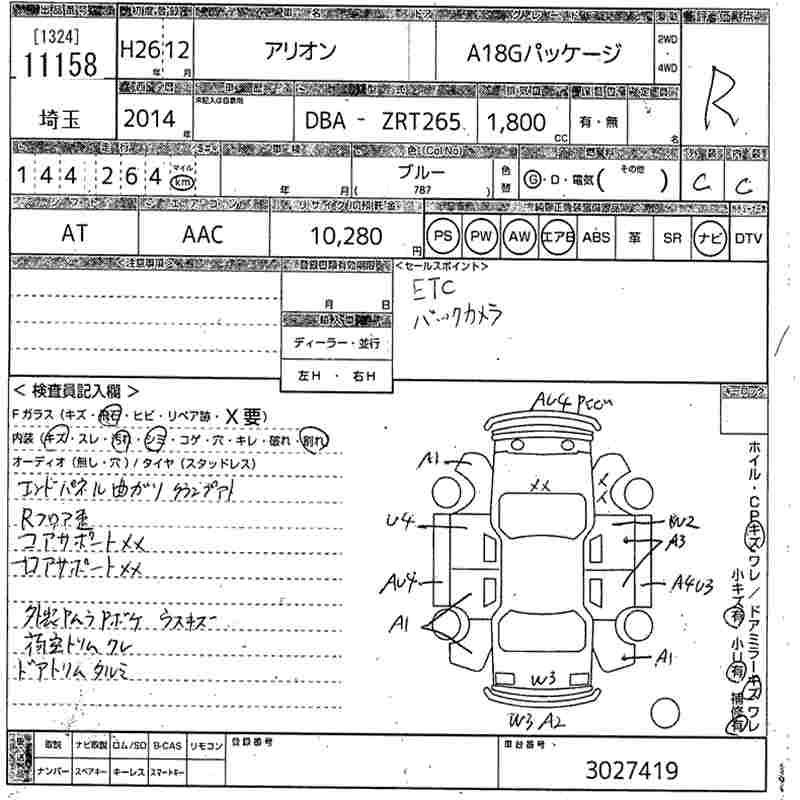 [1324]
11158
埼玉
初度登録
H26 12
年 月
アリオン
A18Gパッケージ
2WD
・
4WD
R
2014
年
未記入は自家用
DBA - ZRT265
1,800
cc
有・無
名
144,264
マイル
km
年 月
色(Col No)
ブルー
( 787 )
色替
燃料
G・D・電気( その他 )
外装 内装
C C
AT
AAC
10,280
円
PS PW AW エアB ABS 革 SR ナビ DTV
注意事項
月 日
ディーラー・並行
左H ・ 右H
<セールスポイント>
ETC
バックカメラ
< 検査員記入欄 >
Fガラス (キズ・飛石・ヒビ・リペア跡・X要)
内装 (キズ・スレ・汚れ・シミ・コゲ・穴・キレ・破れ・割れ)
オーディオ (無し・穴) / タイヤ (スタッドレス)
エンドパネル曲がり クランプアト
Rフロア歪
コアサポートXX
ロアサポートXX
ウスキズ
荷室トリム ワレ
ドアトリム タルミ
AU4
A1
XX
XX
U4
BU2
A3
AU4
A4U3
A1
A1
W3
W3 A2
ホイル・CPキズワレ/ドアミラーキズワレ
小キズ有 小U有 補修有
取説 ナビ取説 ロム/SD B-CAS リモコン
ナンバー スペアキー キーレス スマートキー
登録番号
車台番号
3027419